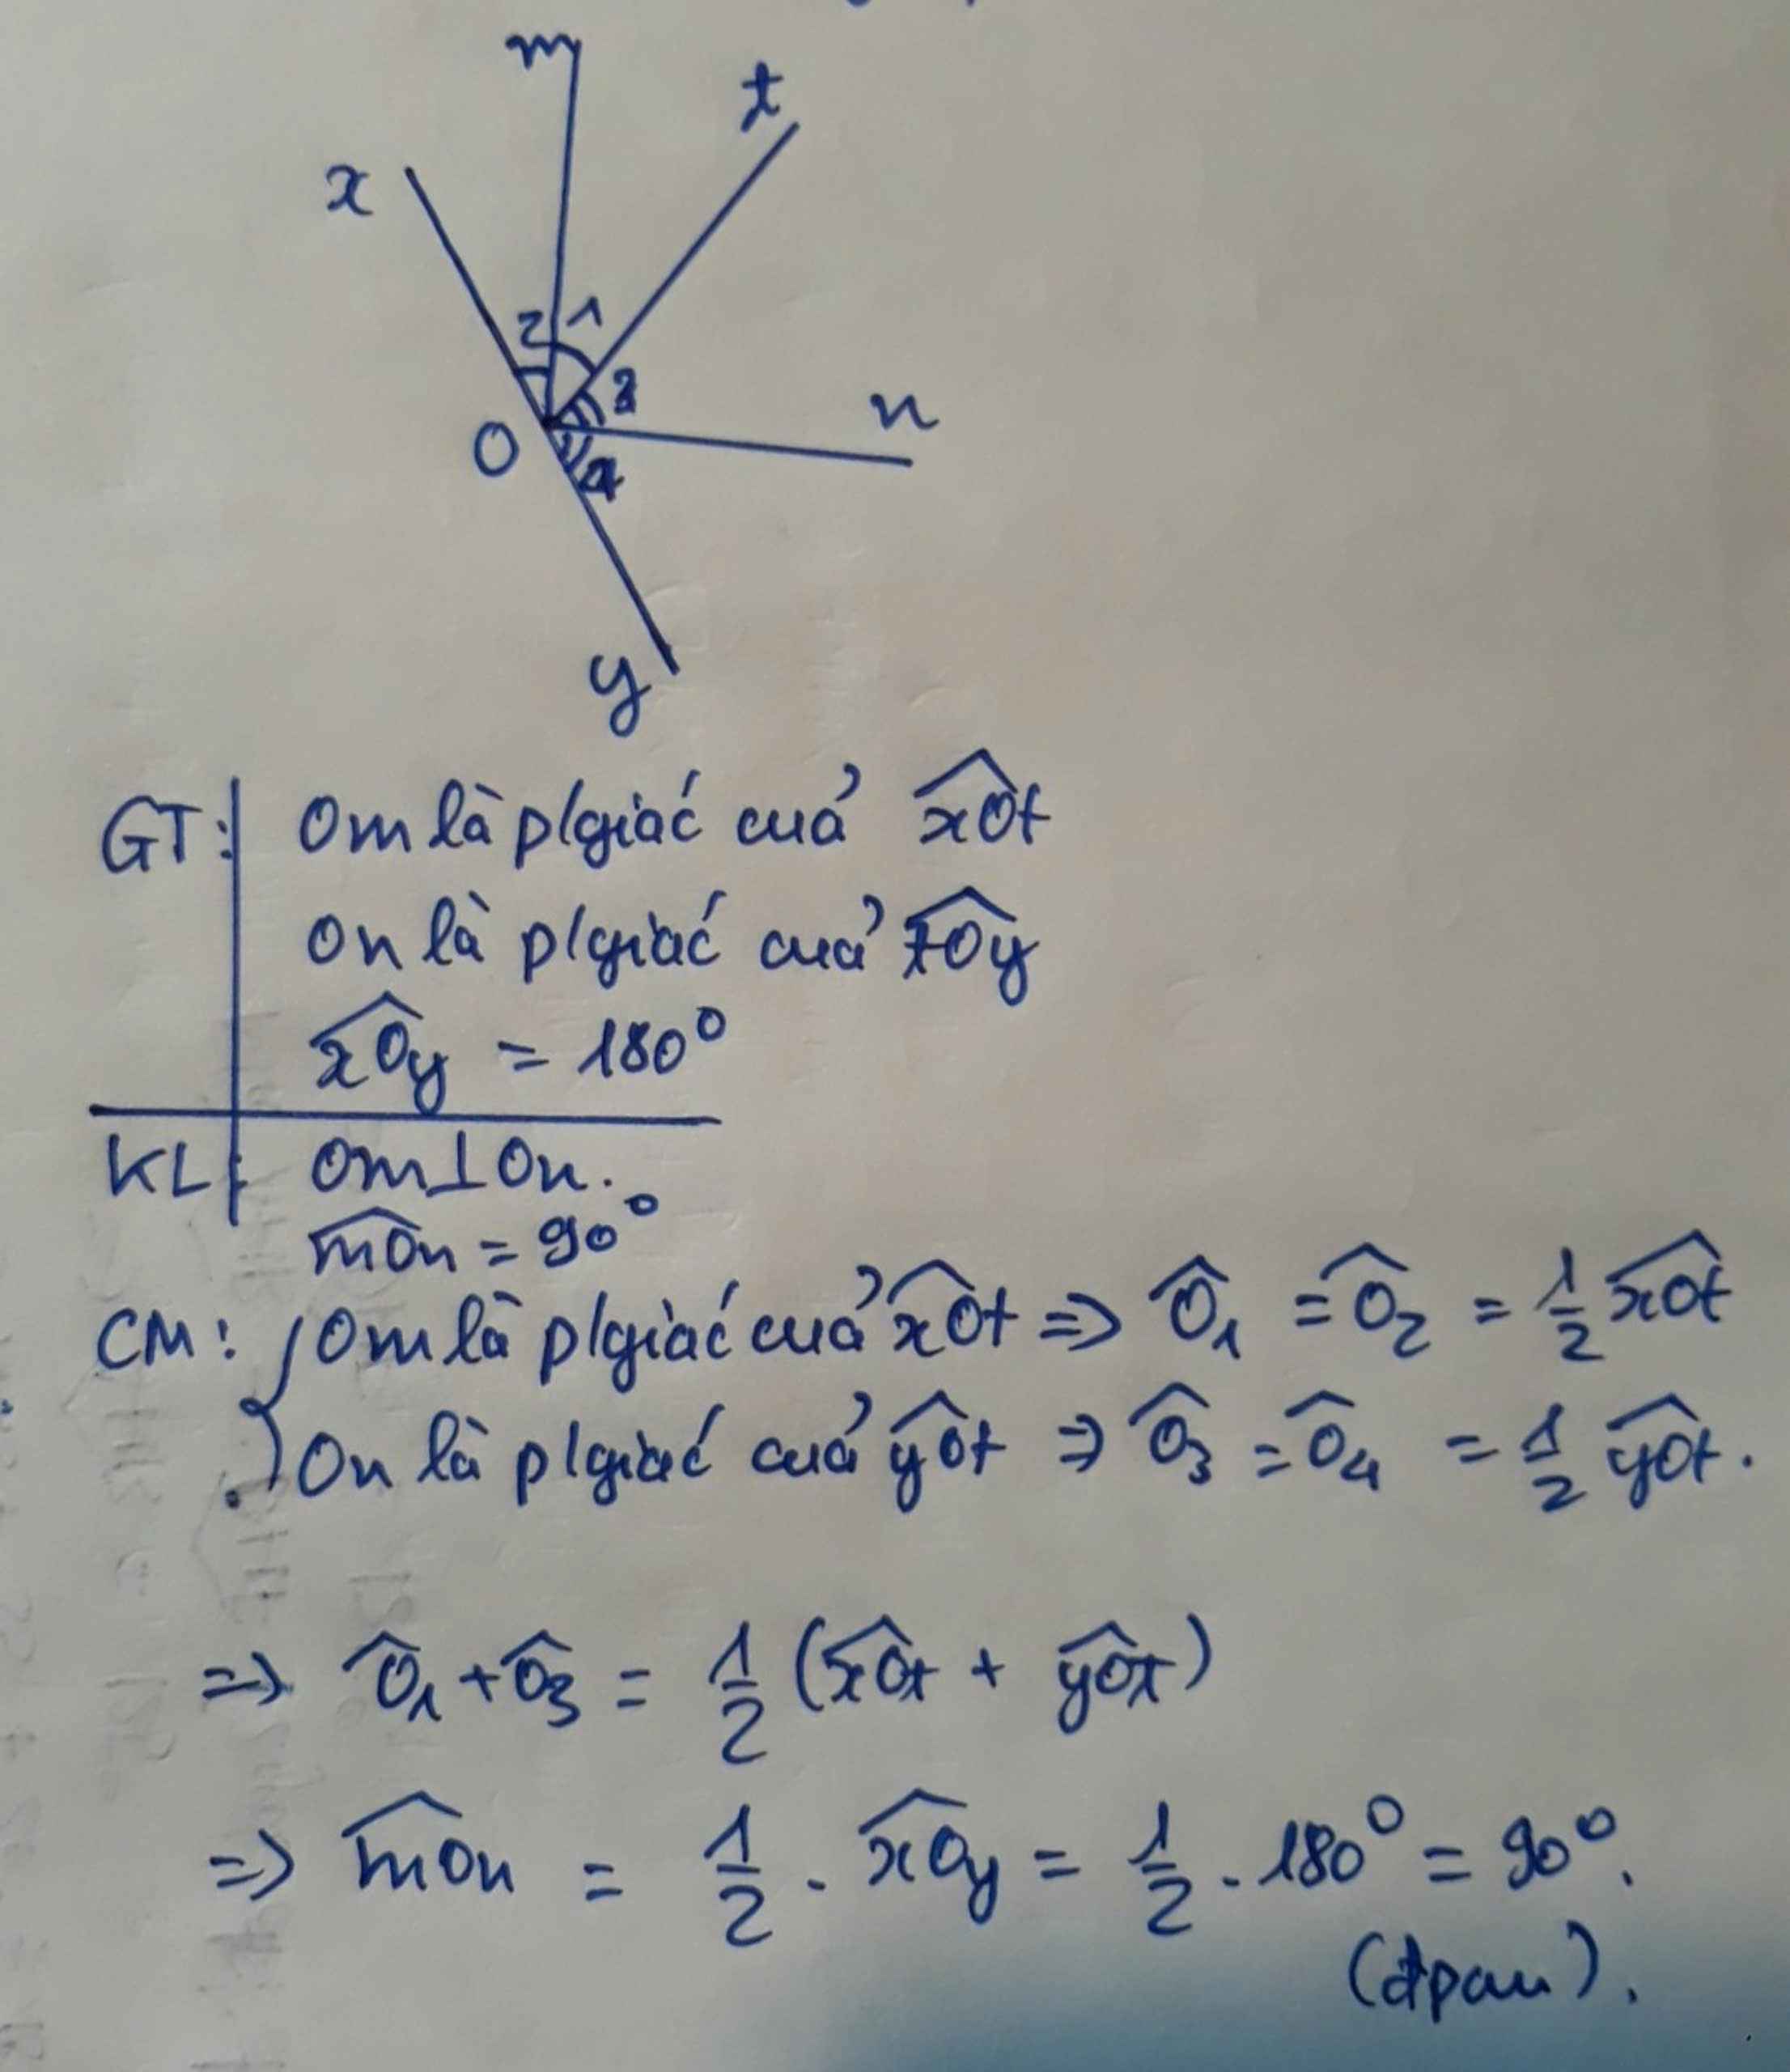 m
t
x
2 1
3
n
O
4
y
GT: Om là p/giác của x̂Ot
On là p/giác của t̂Oy
x̂Oy = 180°
KL: Om⊥On.
m̂On = 90°
CM: { Om là p/giác của x̂Ot => Ô₁ = Ô₂ = 1/2 x̂Ot
On là p/giác của ŷOt => Ô₃ = Ô₄ = 1/2 ŷOt.
=> Ô₁ + Ô₃ = 1/2 (x̂Ot + ŷOt)
=> m̂On = 1/2 . x̂Oy = 1/2 . 180° = 90°.
(đpcm).